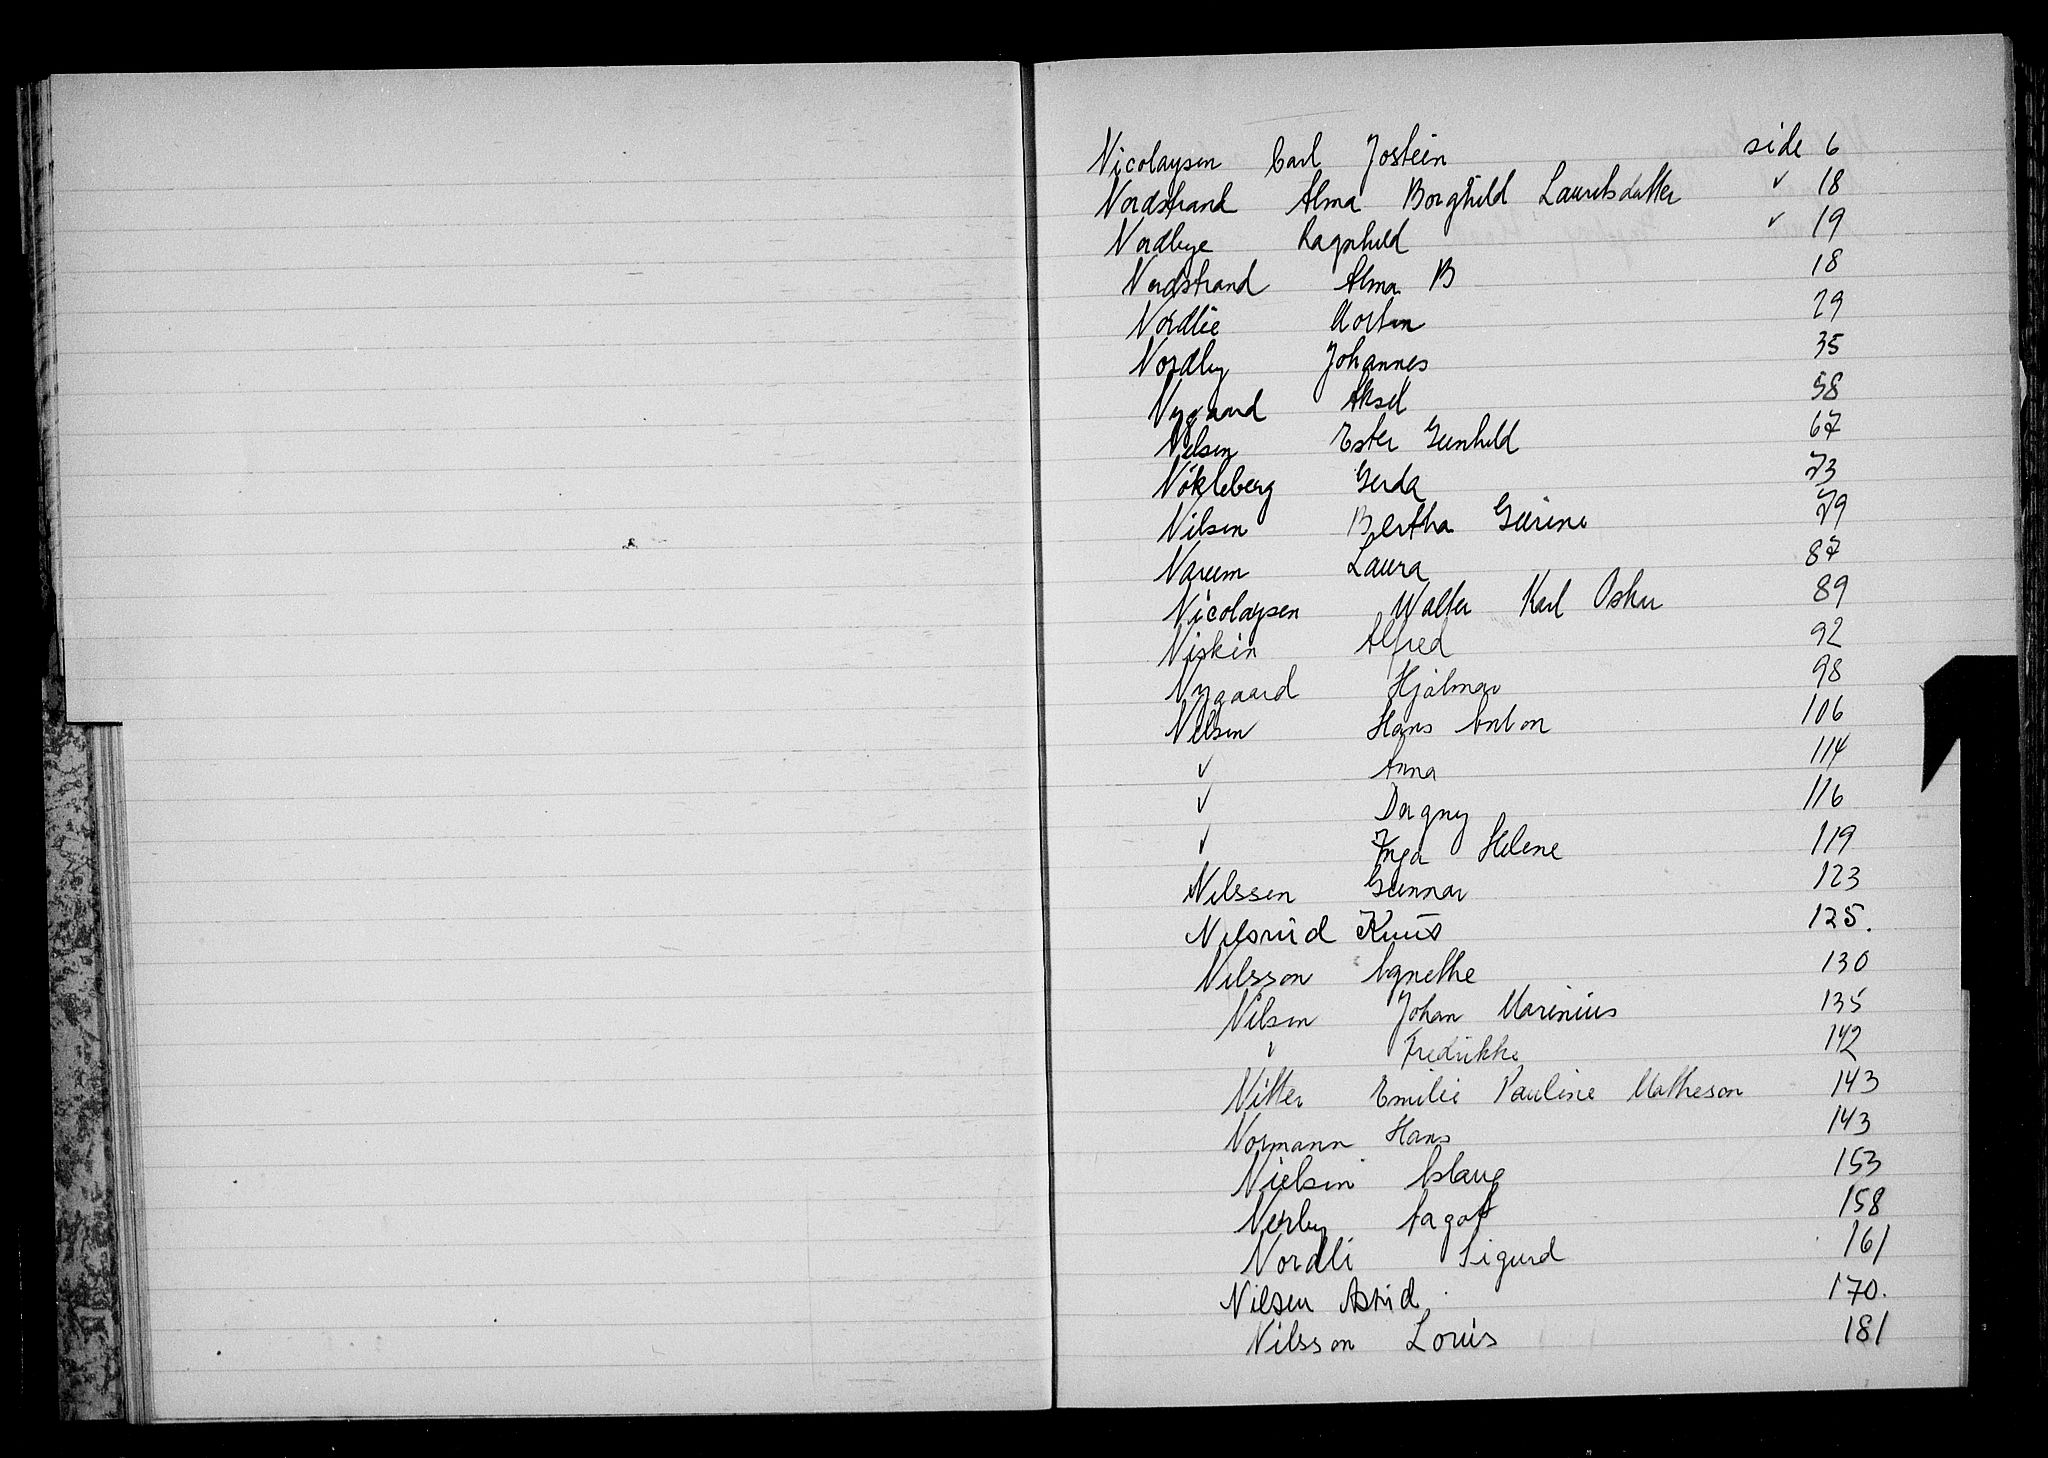 Nicolaysen Carl Jostein side 6
Nordstrand Alma Borghild Lauritsdatter ✓ 18
Nordbye Ragnhild ✓ 19
Nordstrand Alma B 18
Nordlie Morten 29
Nordby Johannes 35
Nygaard Aksel 58
Nilsen Ester Gunhild 67
Nökleberg Gerda 73
Nilsen Bertha Gurine 79
Narum Laura 87
Nicolaysen Walter Karl Oskar 89
Niskin Alfred 92
Nygaard Hjalmar 98
Nilsen Hans Anton 106
✓ Anna 114
✓ Dagny 116
✓ Inga Helene 119
Nilssen Gunnar 123
Nilsrud Knut 125.
Nilsson Agnethe 130
Nilsen Johan Marinius 135
✓ Fredrikke 142
Nitter Emilie Pauline Matheson 143
Normann Hans 143
Nielsen Aslaug 153
Nerby Aagot 158
Nordli Sigurd 161
Nilsen Astrid 170.
Nilsson Louis 181